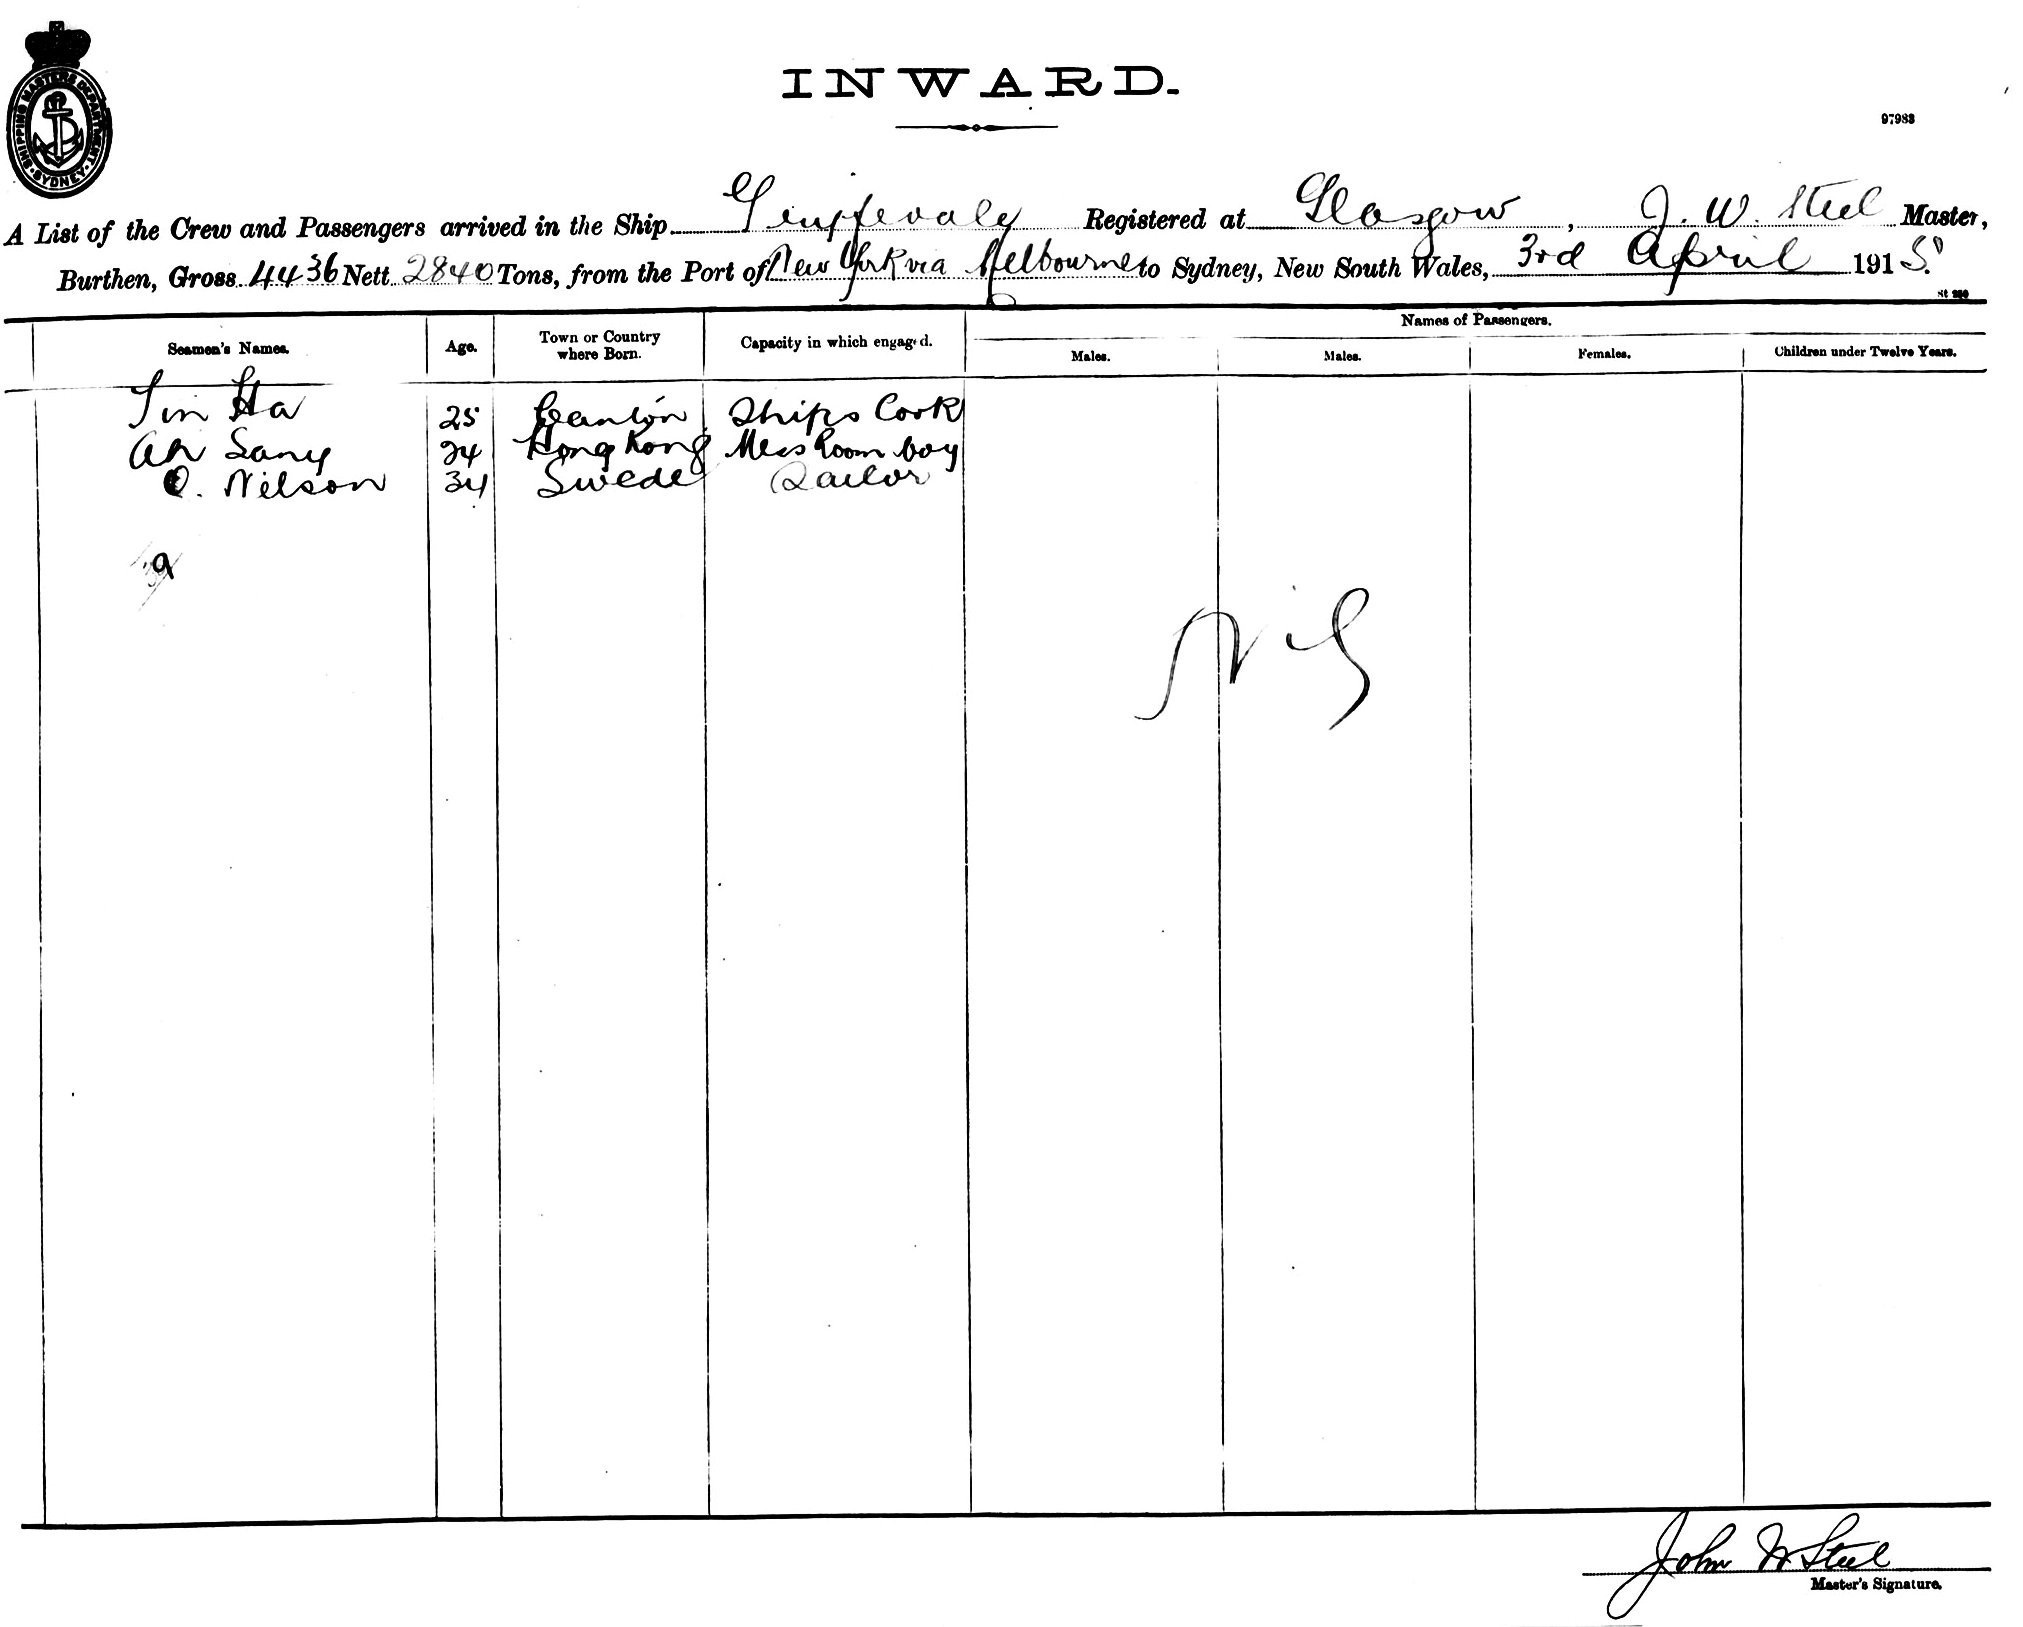 SHIPPING MASTERS DEPARTMENT
SYDNEY
INWARD.
97983
A List of the Crew and Passengers arrived in the Ship Registered at Glasgow, J. W. Steel Master,
Burthen, Gross 4436 Nett 2840 Tons, from the Port of New York via Melbourne to Sydney, New South Wales, 3rd April 1915
Names of Passengers.
Seamen's Names. Age. Town or Country where Born. Capacity in which engaged. Males. Males. Females. Children under Twelve Years.
Tin Ha 25 Canton Ships Cook
Ah Sany 24 Hong Kong Mess Room boy
O. Nilson 34 Swede Sailor
Nil
John W Steel
Master's Signature.